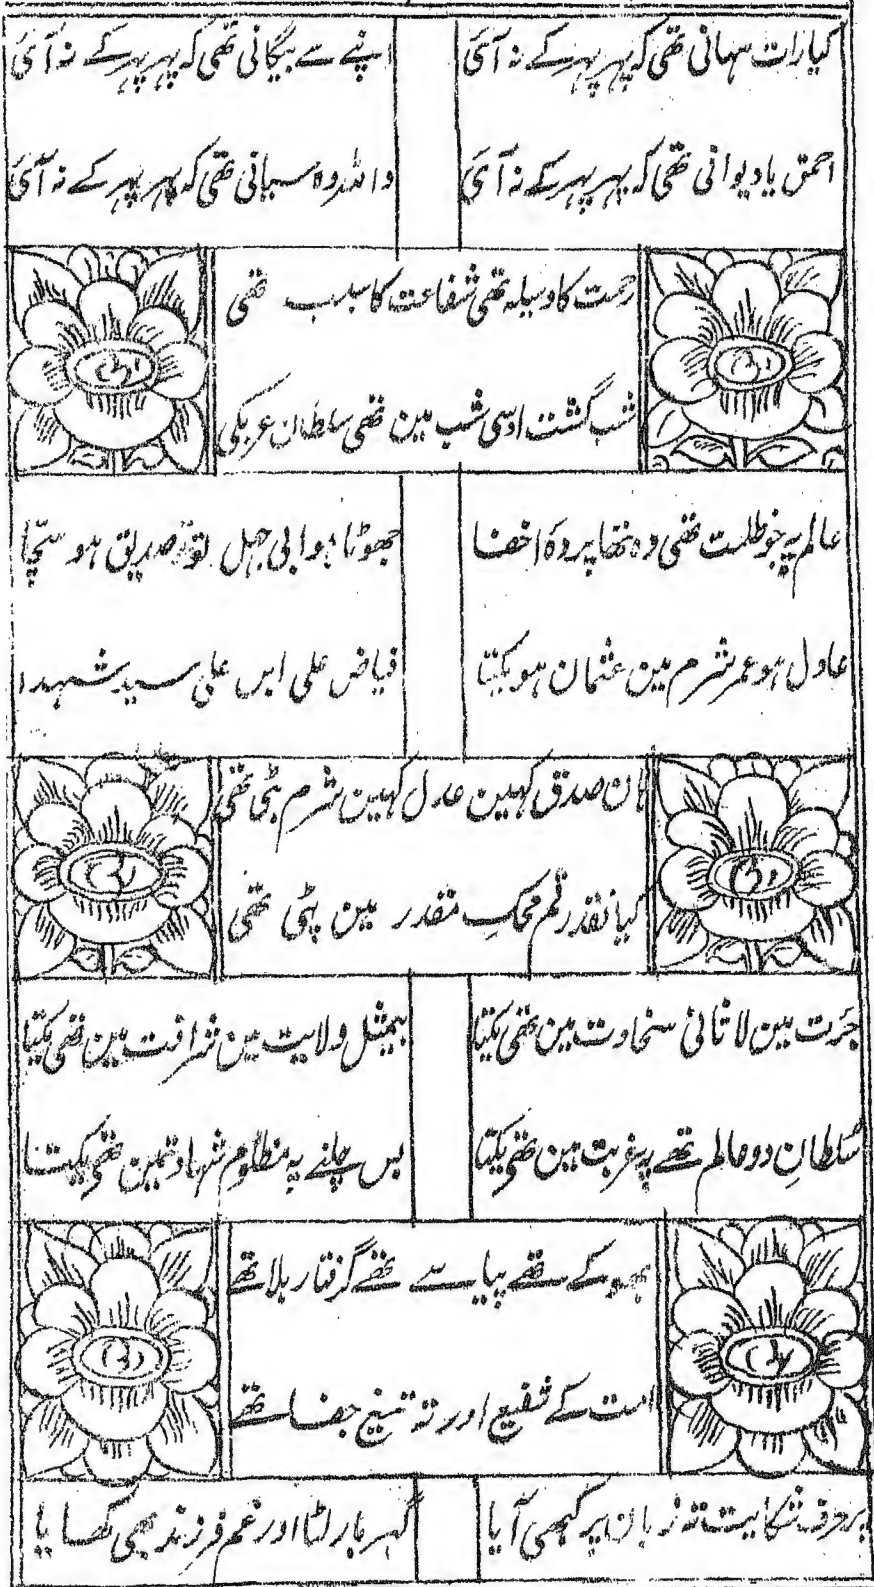 کیا رات سہانی تھی کہ پہر پہر کے نہ آئی
اپنے سے بیگانی تھی کہ پہر پہر کے نہ آئی
احمق یا دیوانی تھی کہ پہر پہر کے نہ آئی
واللہ وہ سیانی تھی کہ پہر پہر کے نہ آئی
رحمت کا وسیلہ تھی شفاعت کا سبب تھی
شب گشت اوسی شب مین تھی سلطان عربکی
عالم پہ جو ظلمت تھی وہ تھا پردۂ اخفا
جھوٹا ہو ابی جہل تو صدیق ہو سچّا
عادل ہو عمر شرم مین عثمان ہو یکتا
فیاض علی ابن علی سید شہدا
ہان صدق کہین عدل کہین شرم بٹی تھی
کیا نقد رقم محکِ مقدر مین پٹی تھی
جرٔت مین لاثانی سخاوت مین تھی یکتا
بیمثل ولایت مین شرافت مین تھی یکتا
سُلطانِ دو عالم تھے پہ غربت مین تھی یکتا
بس چلنے پہ مظلوم شہادتمین تھی یکتا
بھوکے تھے پیاسے تھے گرفتار بلا تھے
امت کے شفیع اور تہ تیغ جفا تھے
پر حرف شکایت نہ زبان پر کبھی آیا
گہر بار لٹا اور غم فرزند بھی کھایا